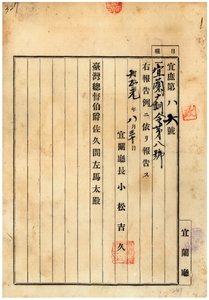 報
宜庶第八號
宜蘭廳訓令第八號
右報告例ニ依リ報告ス
大正元年八月三十日
宜蘭廳長 小松吉久
臺灣總督伯爵佐久間左馬太殿
宜蘭廳